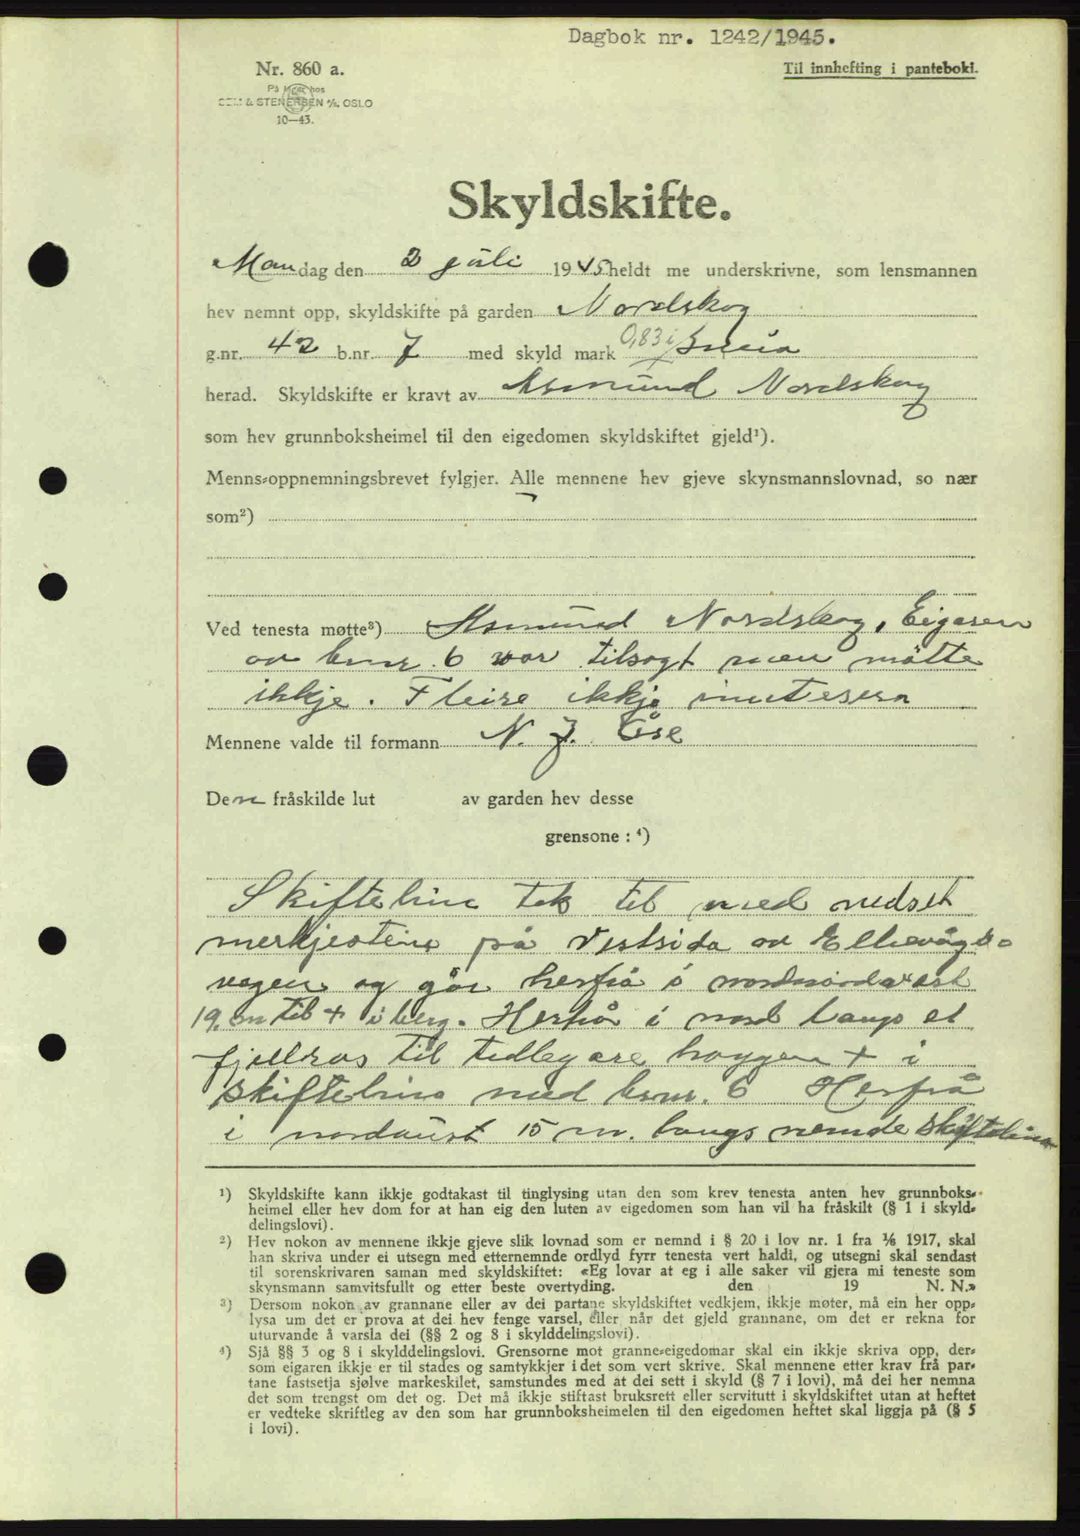 Dagbok nr. 1242/1945.
Nr. 860 a.
Til innhefting i panteboki.
På lager hos
SEM & STENERSEN A/S. OSLO
10—43.
Skyldskifte.
Mandag den 2 juli 1945 heldt me underskrivne, som lensmannen
hev nemnt opp, skyldskifte på garden Nordskog
g.nr. 42 b.nr. 7 med skyld mark 0,83 i Sneia
herad. Skyldskifte er kravt av Asmund Nordskog
som hev grunnboksheimel til den eigedomen skyldskiftet gjeld¹).
Menns-oppnemningsbrevet fylgjer. Alle mennene hev gjeve skynsmannslovnad, so nær
som²)
Ved tenesta møtte³) Asmund Nordskog, Eigaren
av bnr. 6 var tilsagt men møtte
ikkje. Fleire ikkje
Mennene valde til formann N. J. Øse
Den fråskilde lut av garden hev desse
grensone : ⁴)
Skiftelina tek til med nedset
merkjesteine på Vestsida av Ellevågs-
vegen og går herfrå i
19 m til + i berg. Herfrå i nord langs et
fjellras til tidlegare hoggen + i
skiftelina med bnr. 6 Herfrå
i nordaust 15 m. langs nemde skiftelina
¹) Skyldskifte kann ikkje godtakast til tinglysing utan den som krev tenesta anten hev grunnboks-
heimel eller hev dom for at han eig den luten av eigedomen som han vil ha fråskilt (§ 1 i skyld-
delingslovi).
²) Hev nokon av mennene ikkje gjeve slik lovnad som er nemnd i § 20 i lov nr. 1 fra 1/6 1917, skal
han skriva under ei utsegn med etternemnde ordlyd fyrr tenesta vert haldi, og utsegni skal sendast
til sorenskrivaren saman med skyldskiftet: «Eg lovar at eg i alle saker vil gjera mi teneste som
skynsmann samvitsfullt og etter beste overtyding. den 19 N. N.»
³) Dersom nokon av grannane eller av dei partane skyldskiftet vedkjem, ikkje møter, må ein her opp-
lysa um det er prova at dei hev fenge varsel, eller når det gjeld grannane, om det er rekna for
uturvande å varsla dei (§§ 2 og 8 i skylddelingslovi).
⁴) Sjå §§ 3 og 8 i skylddelingslovi. Grensorne mot granne-eigedomar skal ein ikkje skriva opp, der-
som eigaren ikkje er til stades og samtykkjer i det som vert skrive. Skal mennene etter krav frå par-
tane fastsetja sjølve markeskilet, samstundes med at dei sett i skyld (§ 7 i lovi), må dei her nemna
det som trengst om det og. Det må ikkje stiftast bruksrett eller servitutt i skyldskiftet utan at heftet
er vedteke skriftleg av den som har grunnboksheimelen til den eigedomen heftet skal liggja på (§ 5
i lovi).